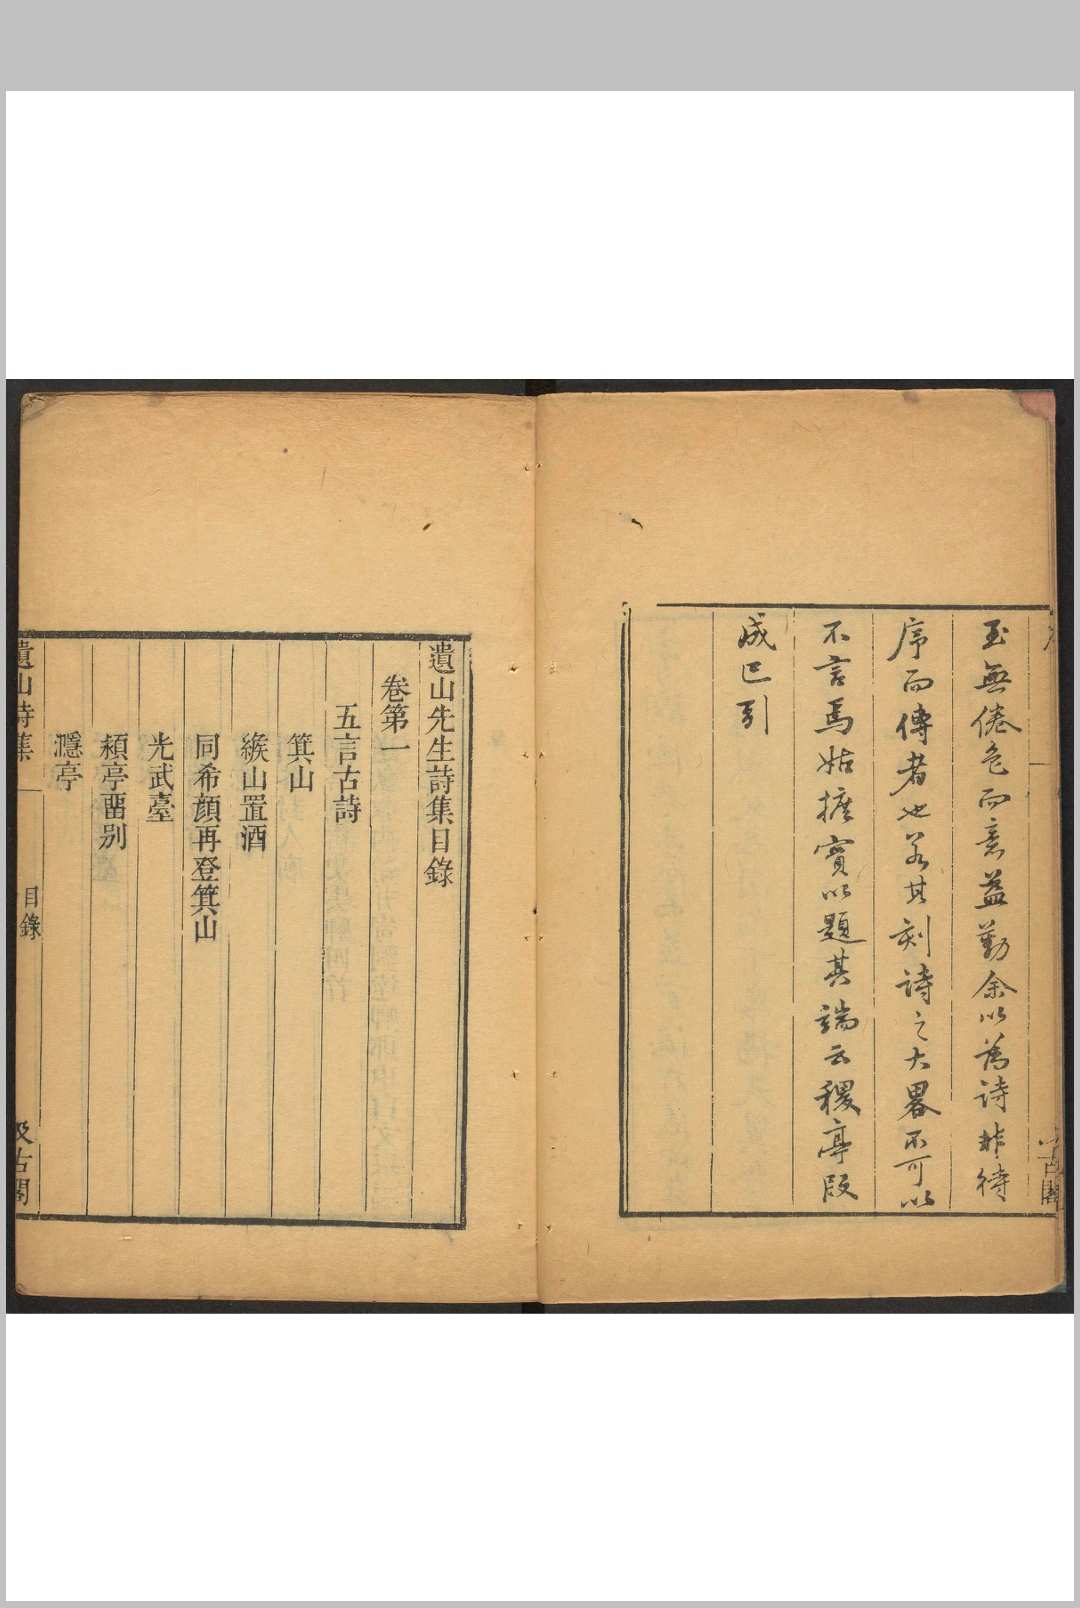 至無倦色而意益勤余以為詩非待
序而傳者也若其刻詩之大畧不可以
不言焉姑摭實以題其端云稷亭段
成已引
遺山先生詩集目錄
卷第一
五言古詩
箕山
緱山置酒
同希顔再登箕山
光武臺
潁亭畱别
㶏亭
遺山詩集
目錄
汲古閣
古閣